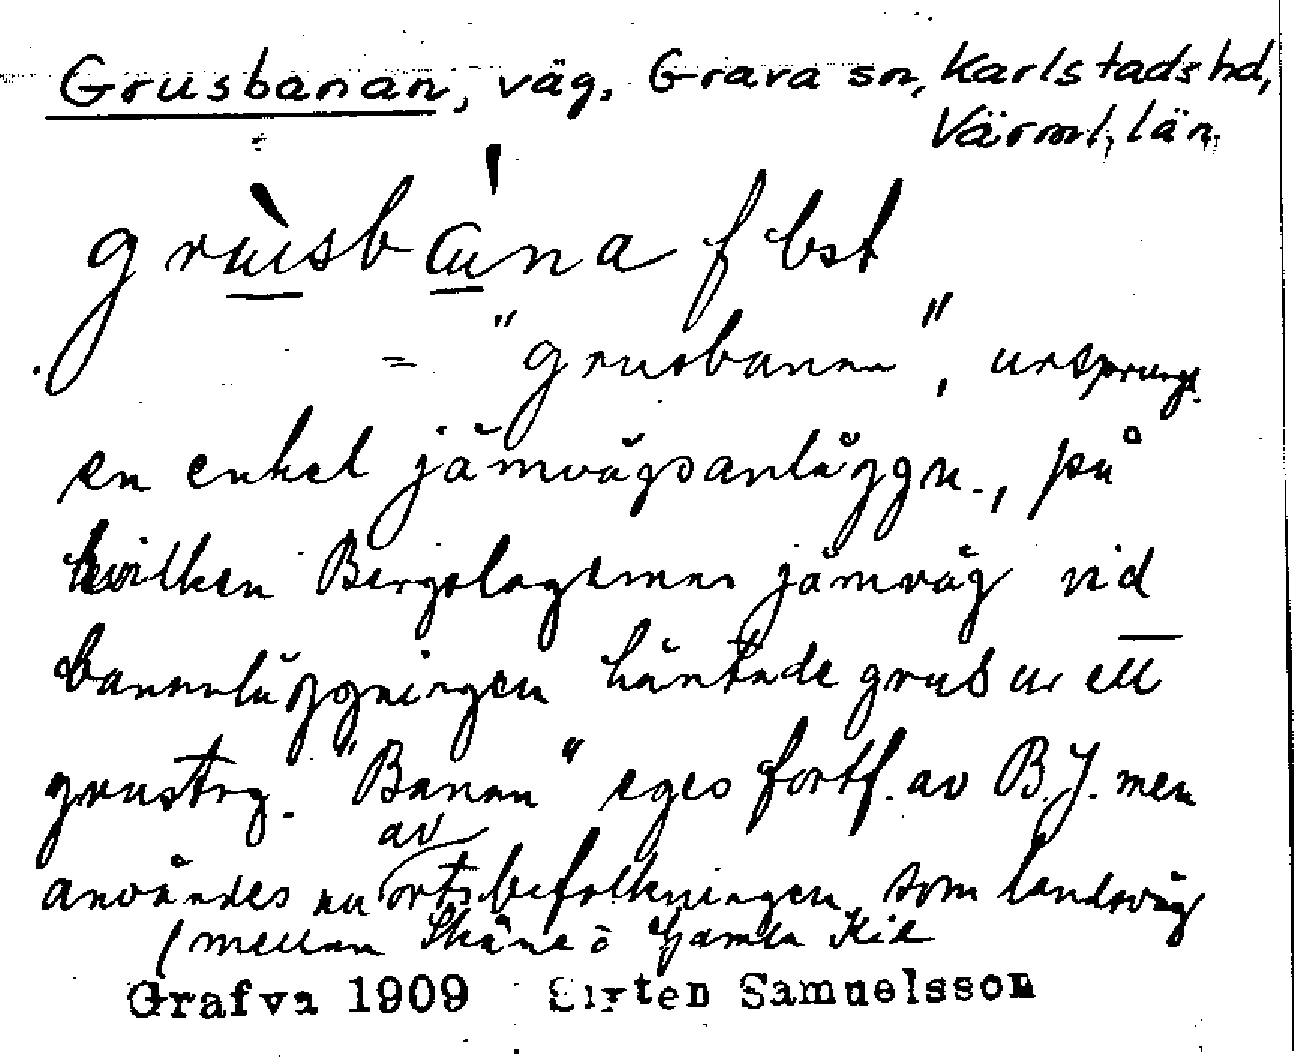 Grusbanan, väg, Grava sn, Karlstads hd,
Värml. län.
grusbana f bst
= "grusbanan", ursprungl.
en enkel järnvägsanläggn., på
hvilken Bergslagernas järnväg vid
bananläggningen hämtade grus ur ett
grustag. "Banan" eges fortf. av B.J. men
användes nu av ortsbefolkningen som landsväg
(mellan Skåne o Gamla Kil
Grafva 1909 Sixten Samuelsson